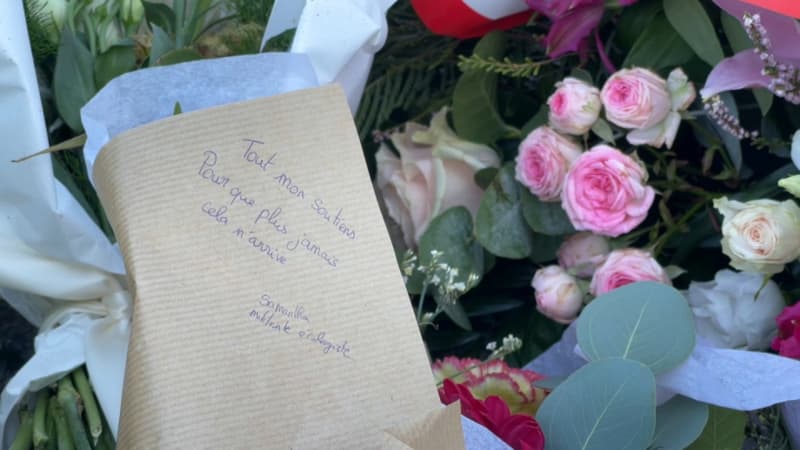 Tout mon soutiens
Pour que plus jamais
cela n'arrive
Samantha
militante écologiste